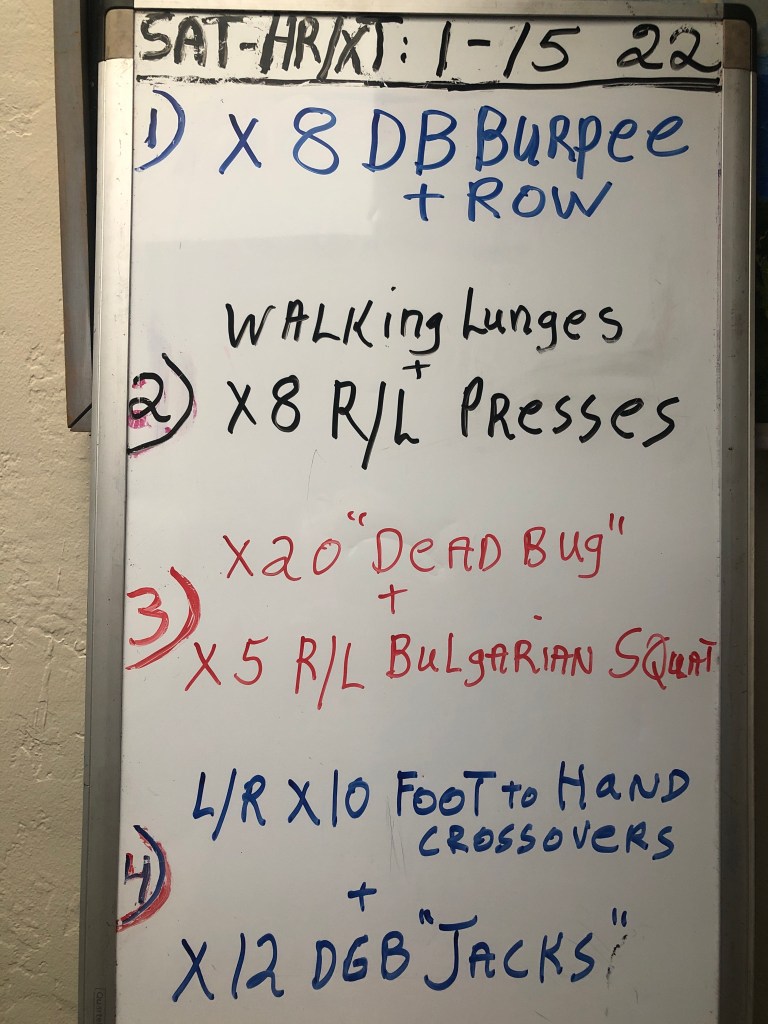 SAT-HR/XT: 1-15 22
1) X 8 DB BURPee
+ ROW
WALKing Lunges
+
2) X8 R/L PResses
X20 "DeAD Bug"
+
3) X5 R/L BuLgARIAN SQuAT
L/R X10 FOOT to HAND
CROSSOVERS
4)
+
X12 DGB "JACKS"